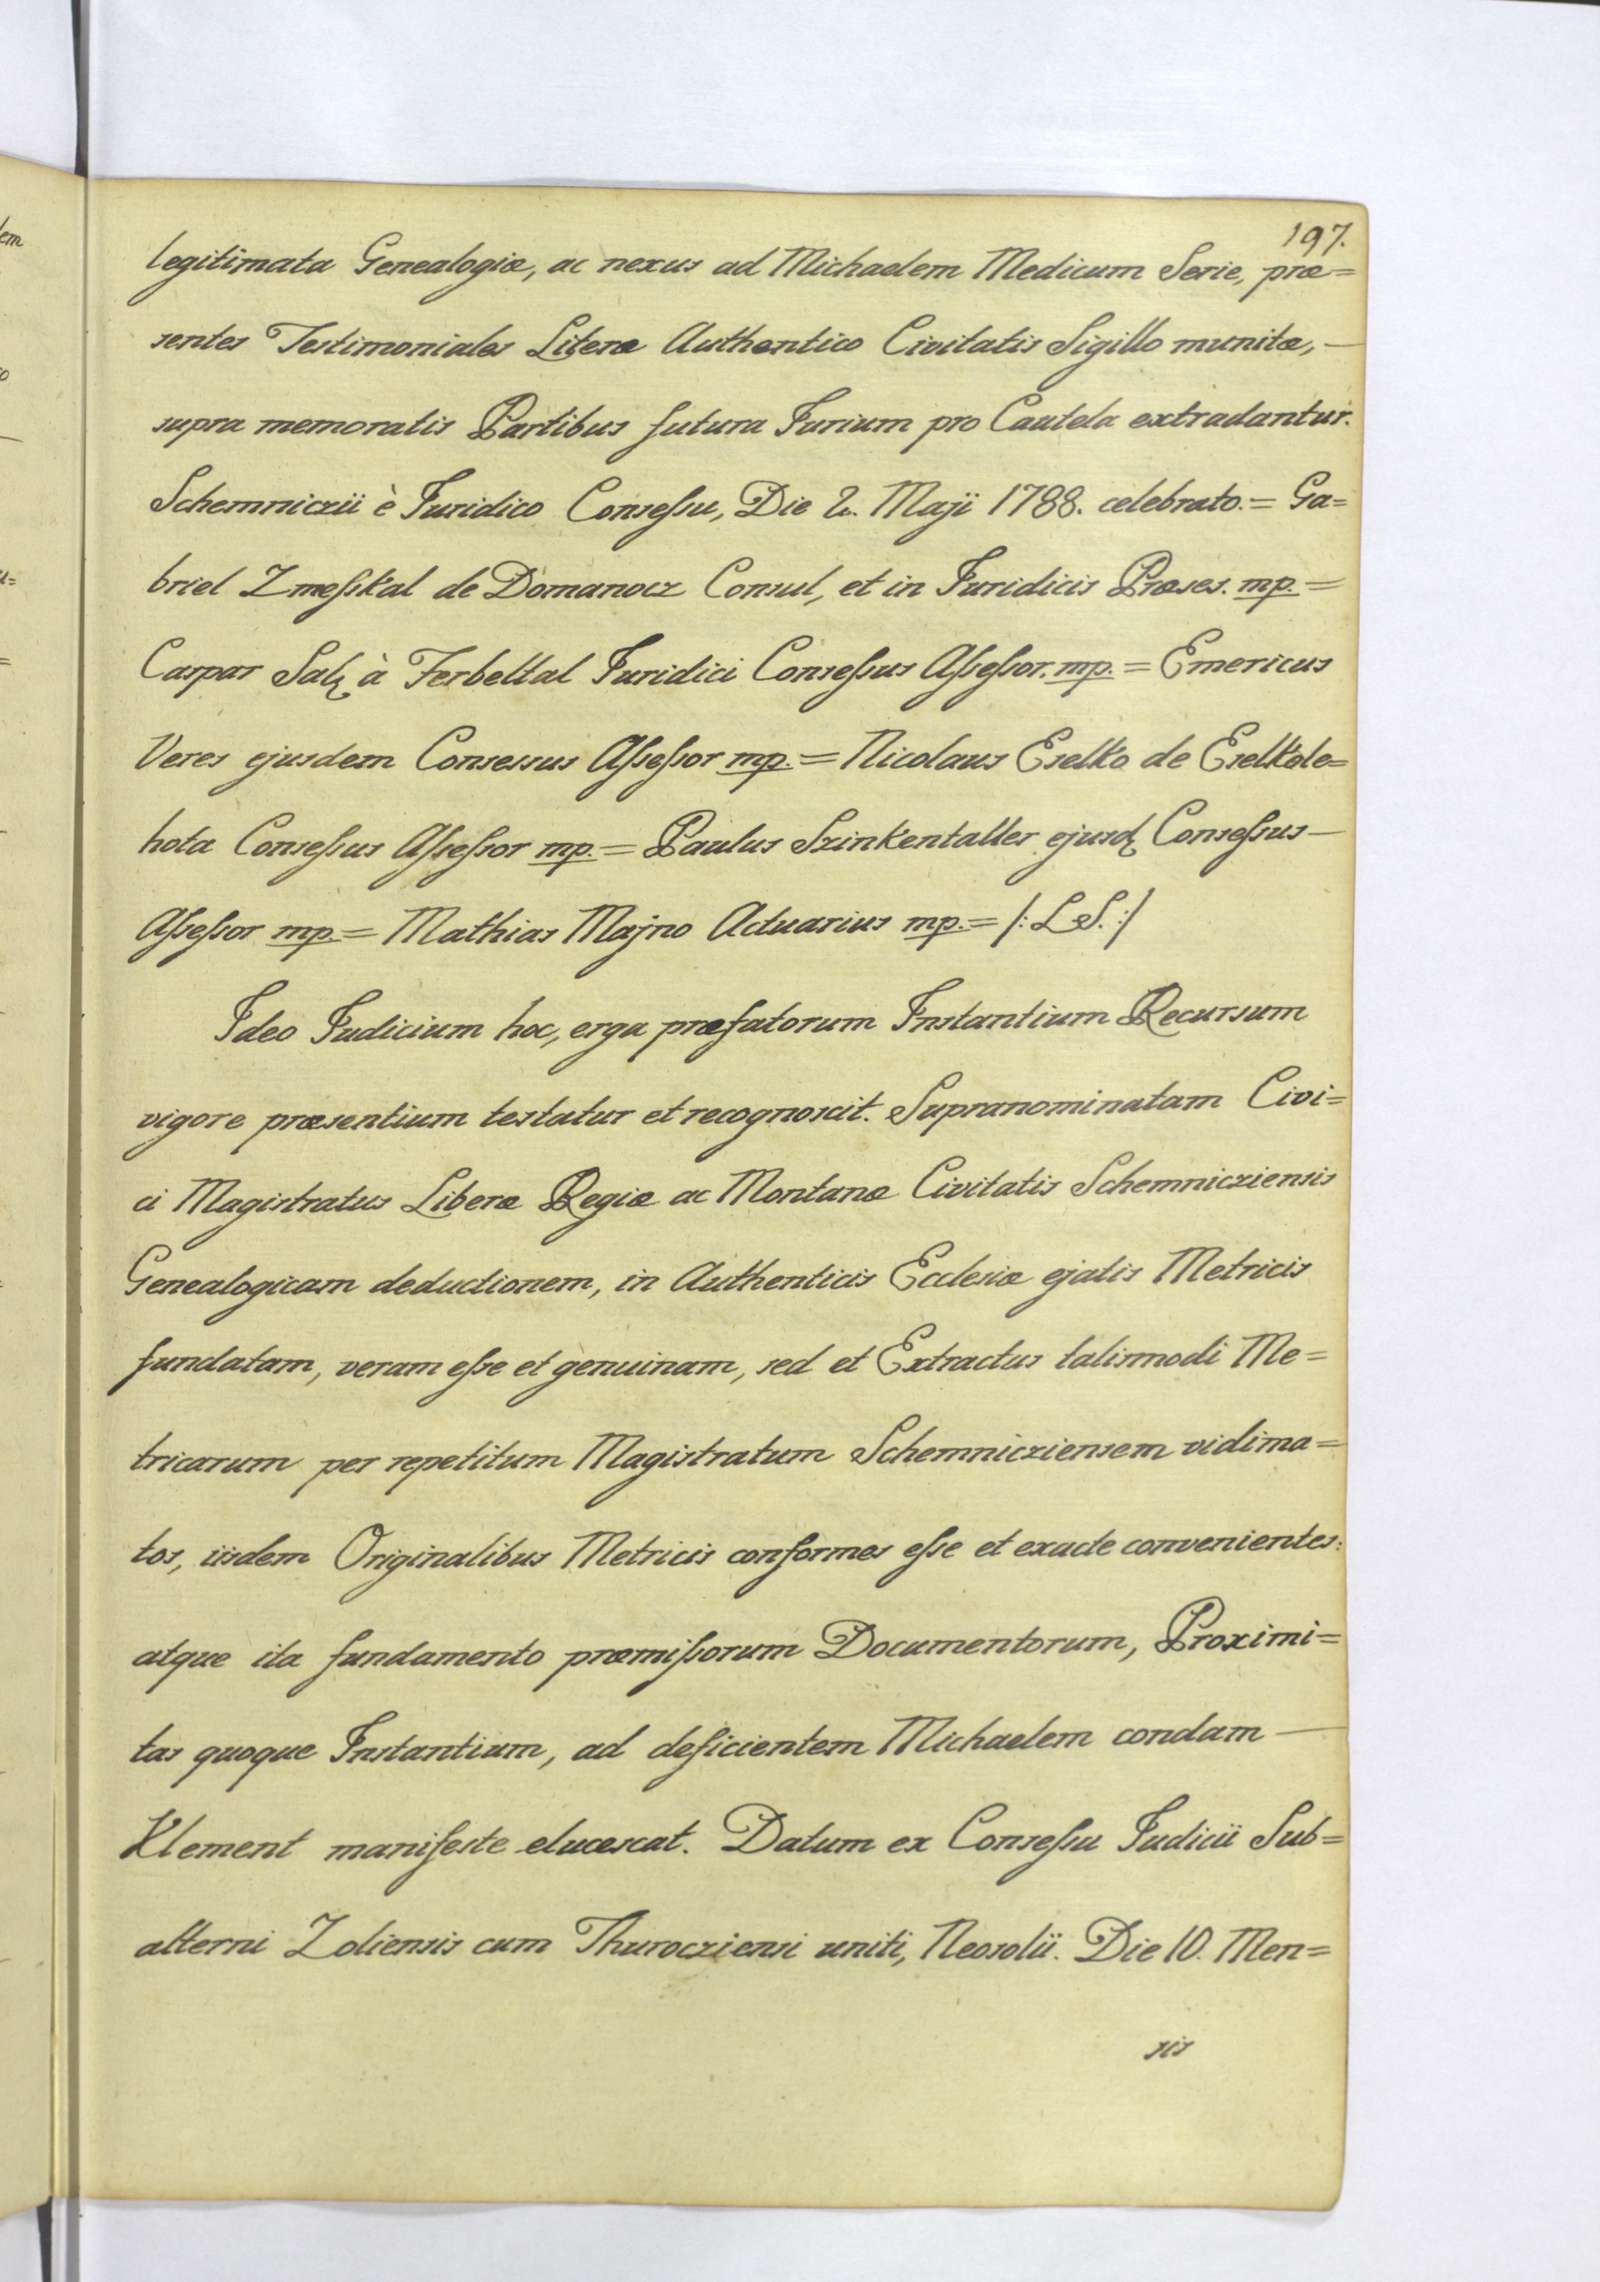 197.
legitimata Genealogiæ, ac nexus ad Michaelem Medicum Serie, præ=
sentes Testimoniales Literæ Authentico Civitatis Sigillo munitæ, —
supra memoratis Partibus futura Jurium pro Cautela extradantur.
Schemniczii è Juridico Consessu, Die 2. Maji 1788. celebrato. = Ga=
briel Zmesskal de Domanocz Consul, et in Juridicis Præses. mp. =
Caspar Salz à Ferbelthal Juridici Consessus Assessor. mp. = Emericus
Veres ejusdem Consessus Assessor mp. = Nicolaus Eselko de Eselkole=
hota Consessus Assessor mp. = Paulus Szinkentaller ejusd Consessus —
Assessor mp. = Mathias Majno Actuarius mp. = /: L.S. :/
Ideo Judicium hoc, erga præfatorum Instantium Recursum
vigore præsentium testatur et recognoscit. Supranominatam Civi=
ci Magistratus Liberæ Regiæ ac Montanæ Civitatis Schemnicziensis
Genealogicam deductionem, in Authenticis Ecclesiæ ejatis Metricis
fundatam, veram esse et genuinam, sed et Extractus talismodi Me=
tricarum per repetitum Magistratum Schemnicziensem vidima=
tos, iisdem Originalibus Metricis conformes esse et exacte convenientes:
atque ita fundamento præmissorum Documentorum, Proximi=
tas quoque Instantium, ad deficientem Michaelem condam —
Klement manifeste elucescat. Datum ex Consessu Judicii Sub=
alterni Zoliensis cum Thurocziensi uniti, Neosolii. Die 10. Men=
sis
em